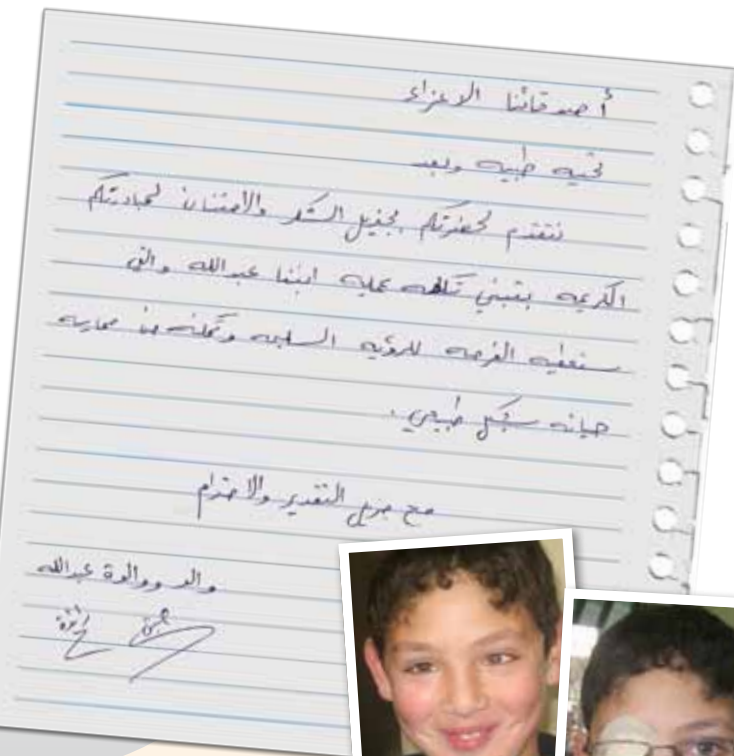 أصدقائنا الاعزاء
تحيه طيبه وبعد
نتقدم لحضرتكم بجزيل الشكر والامتنان لمبادرتكم
الكريمه بتبني تكلفه عملية ابننا عبدالله والتي
ستعطيه الفرصه للرؤيه السليمه وتمكنه من ممارسه
حياته بشكل طبيعي .
مع جزيل التقدير والاحترام
والد ووالدة عبدالله